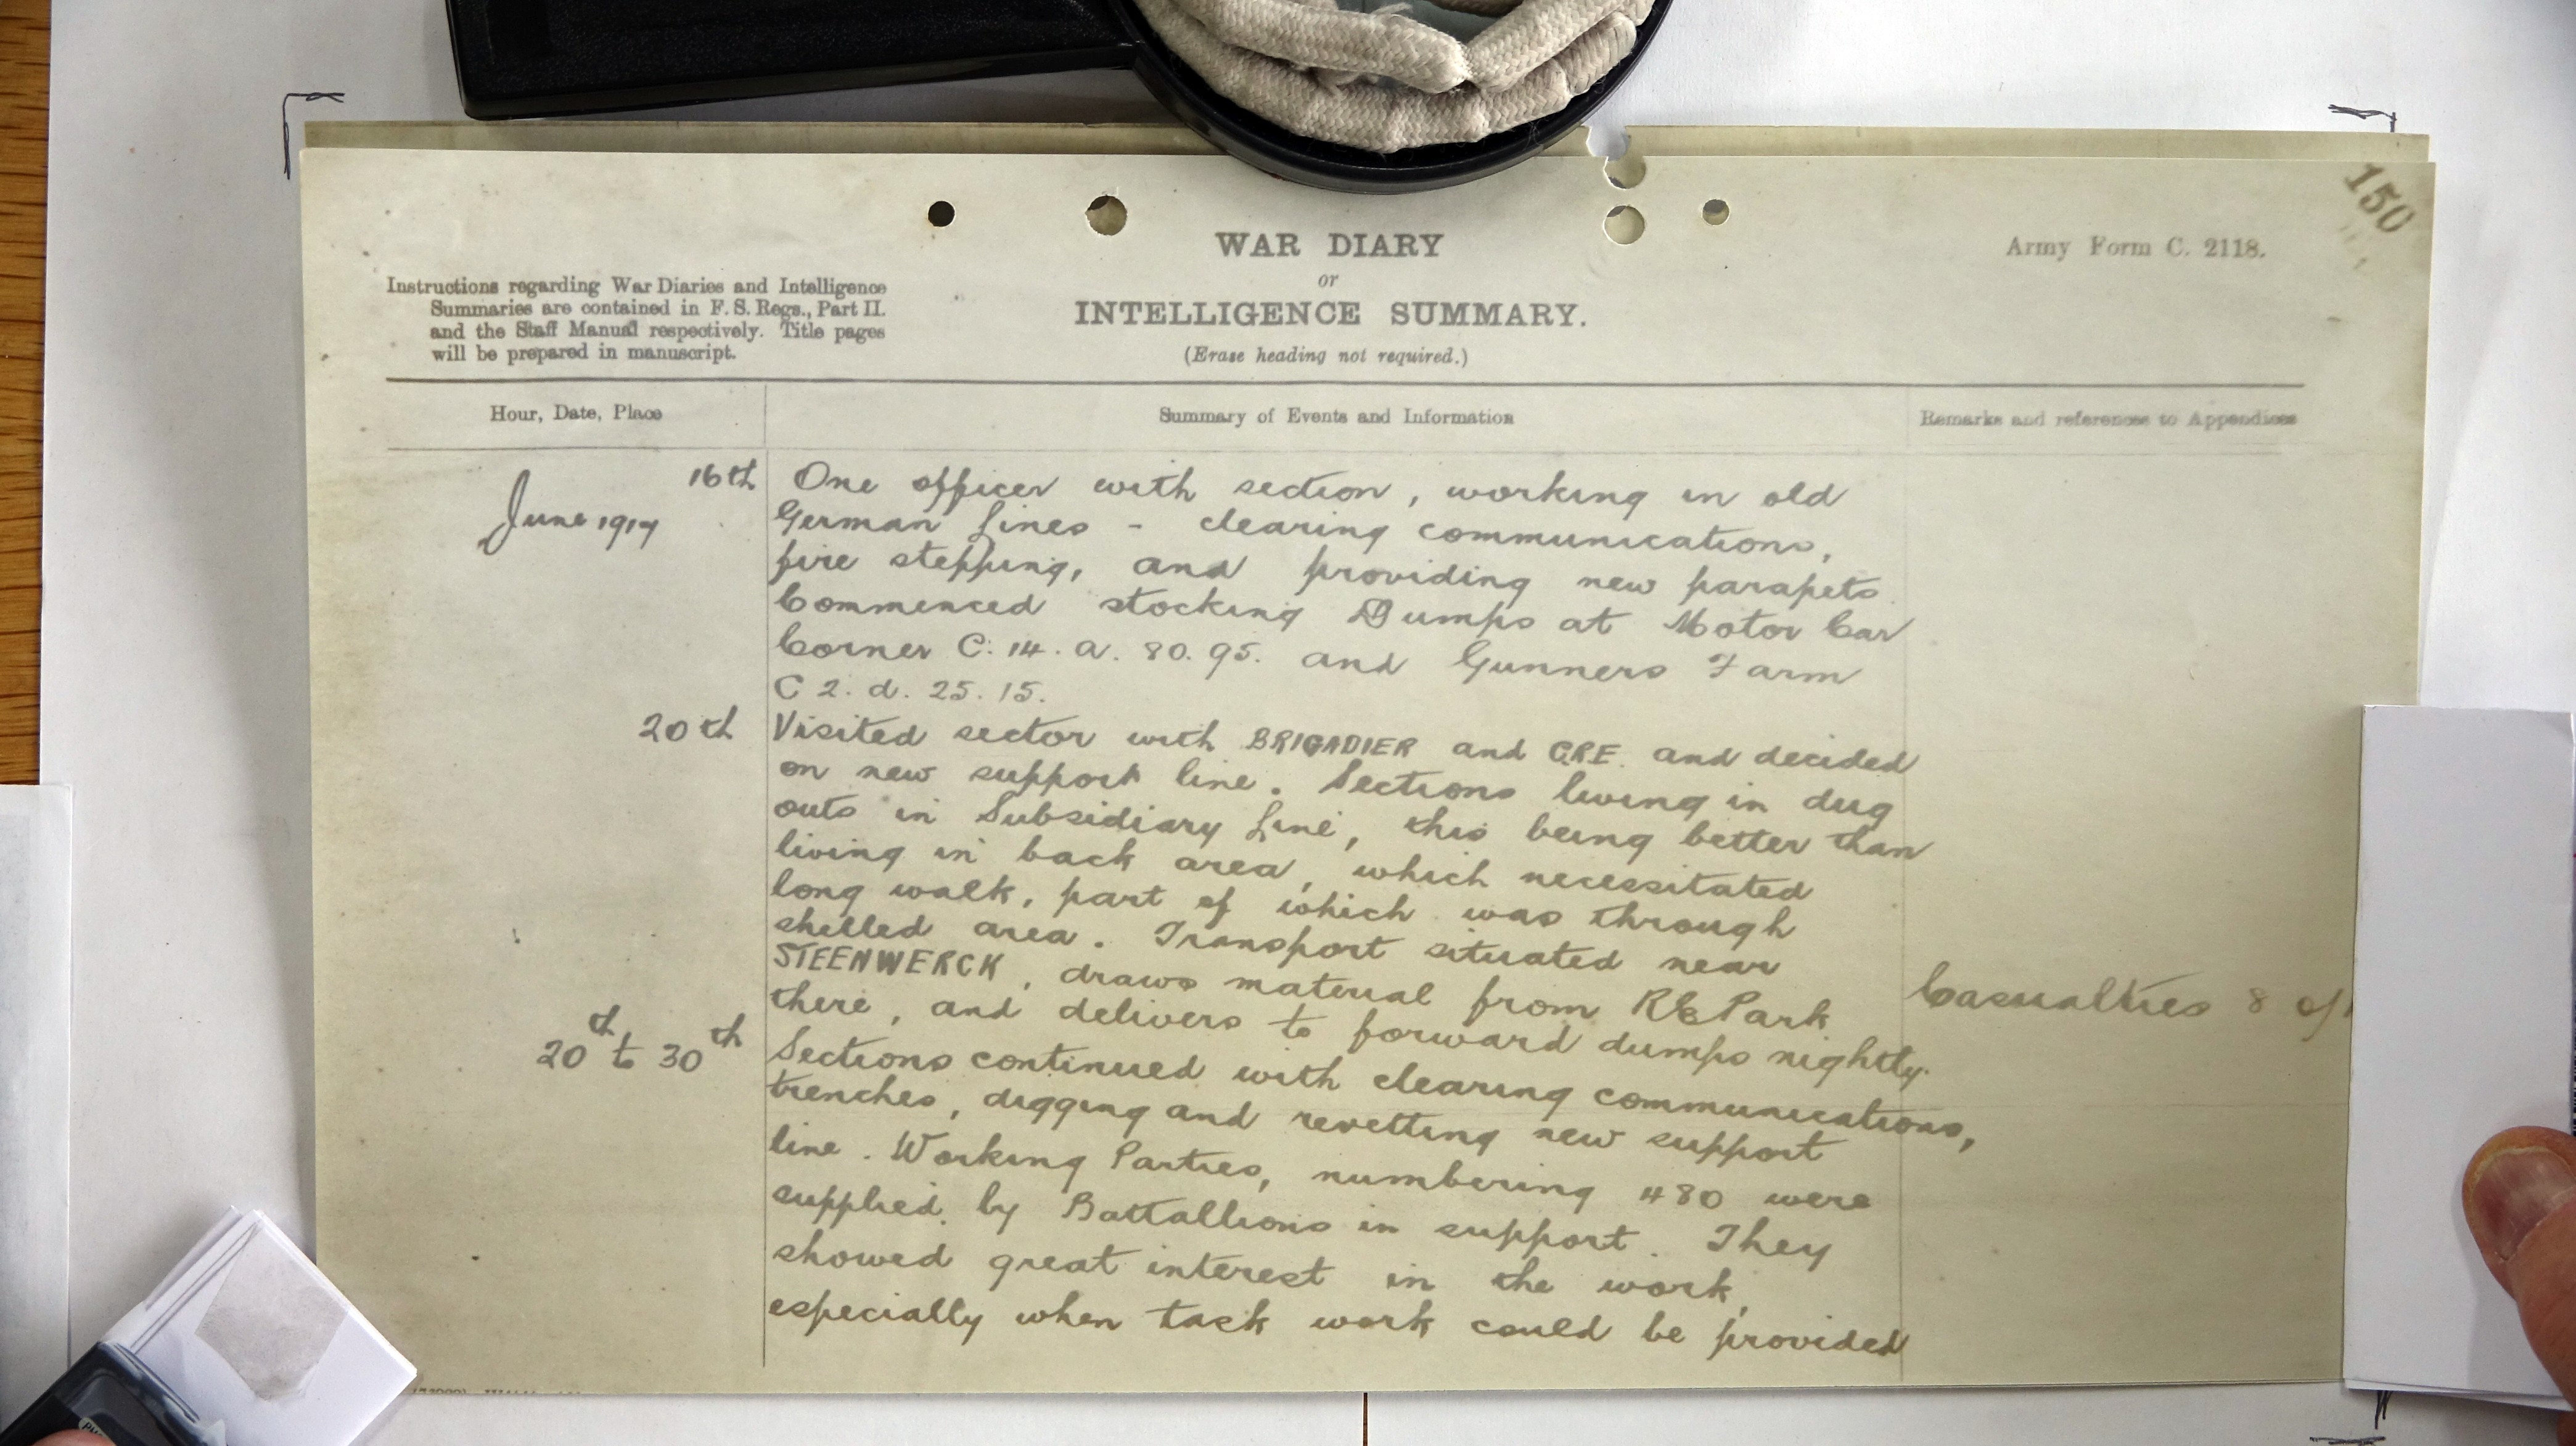 150
WAR DIARY
or
INTELLIGENCE SUMMARY.
(Erase heading not required.)
Army Form C. 2118.
Instructions regarding War Diaries and Intelligence
Summaries are contained in F. S. Regs., Part II.
and the Staff Manual respectively. Title pages
will be prepared in manuscript.
Hour, Date, Place
Summary of Events and Information
Remarks and references to Appendices
June 1917
16th
One officer with section, working in old
German lines - clearing communications,
fire stepping, and providing new parapets
Commenced stocking Dumps at Motor Car
Corner C. 14. a. 80. 95. and Gunners Farm
C 2. d. 25. 15.
20th
Visited sector with BRIGADIER and CRE. and decided
on new support line. Sections living in dug
outs in Subsidiary Line, this being better than
living in back area, which necessitated
long walk, part of which was through
shelled area. Transport situated near
STEENWERCK, draws material from RE Park
there, and delivers to forward dumps nightly.
Casualties 8
20th to 30th
Sections continued with clearing communications,
trenches, digging and revetting new support
line. Working Parties, numbering 480 were
supplied by Battallions in support. They
showed great interest in the work,
especially when task work could be provided